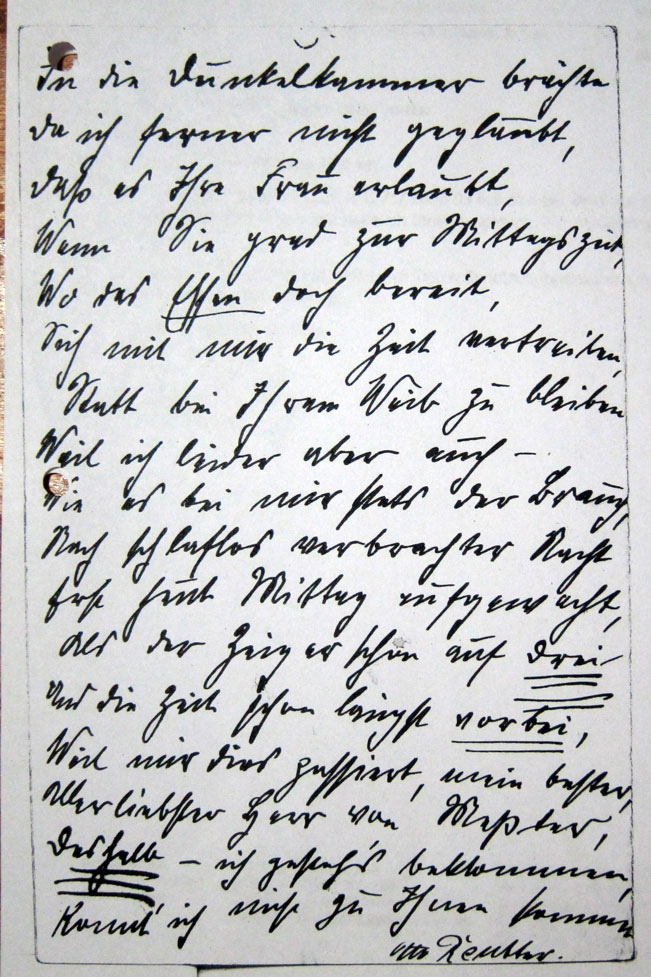 In die Dunkelkammer brächte
Da ich ferner nicht geglaubt,
Daß es Ihre Frau erlaubt,
Wenn Sie grad zur Mittagszeit,
Wo das Essen doch bereit,
Sich mit mir die Zeit vertreiben,
Statt bei Ihrem Weib zu bleiben
Weil ich leider aber auch –
Wie es bei mir stets der Brauch,
Nach schlaflos verbrachter Nacht
Erst heut Mittag aufgewacht,
Als der Zeiger schon auf drei
Und die Zeit schon längst vorbei,
Weil mir dies passiert, mein bester,
Allerliebster Herr von Meßter,
Deshalb – ich gesteh's beklommen,
Konnt' ich nicht zu Ihnen kommen
Otto Reutter.